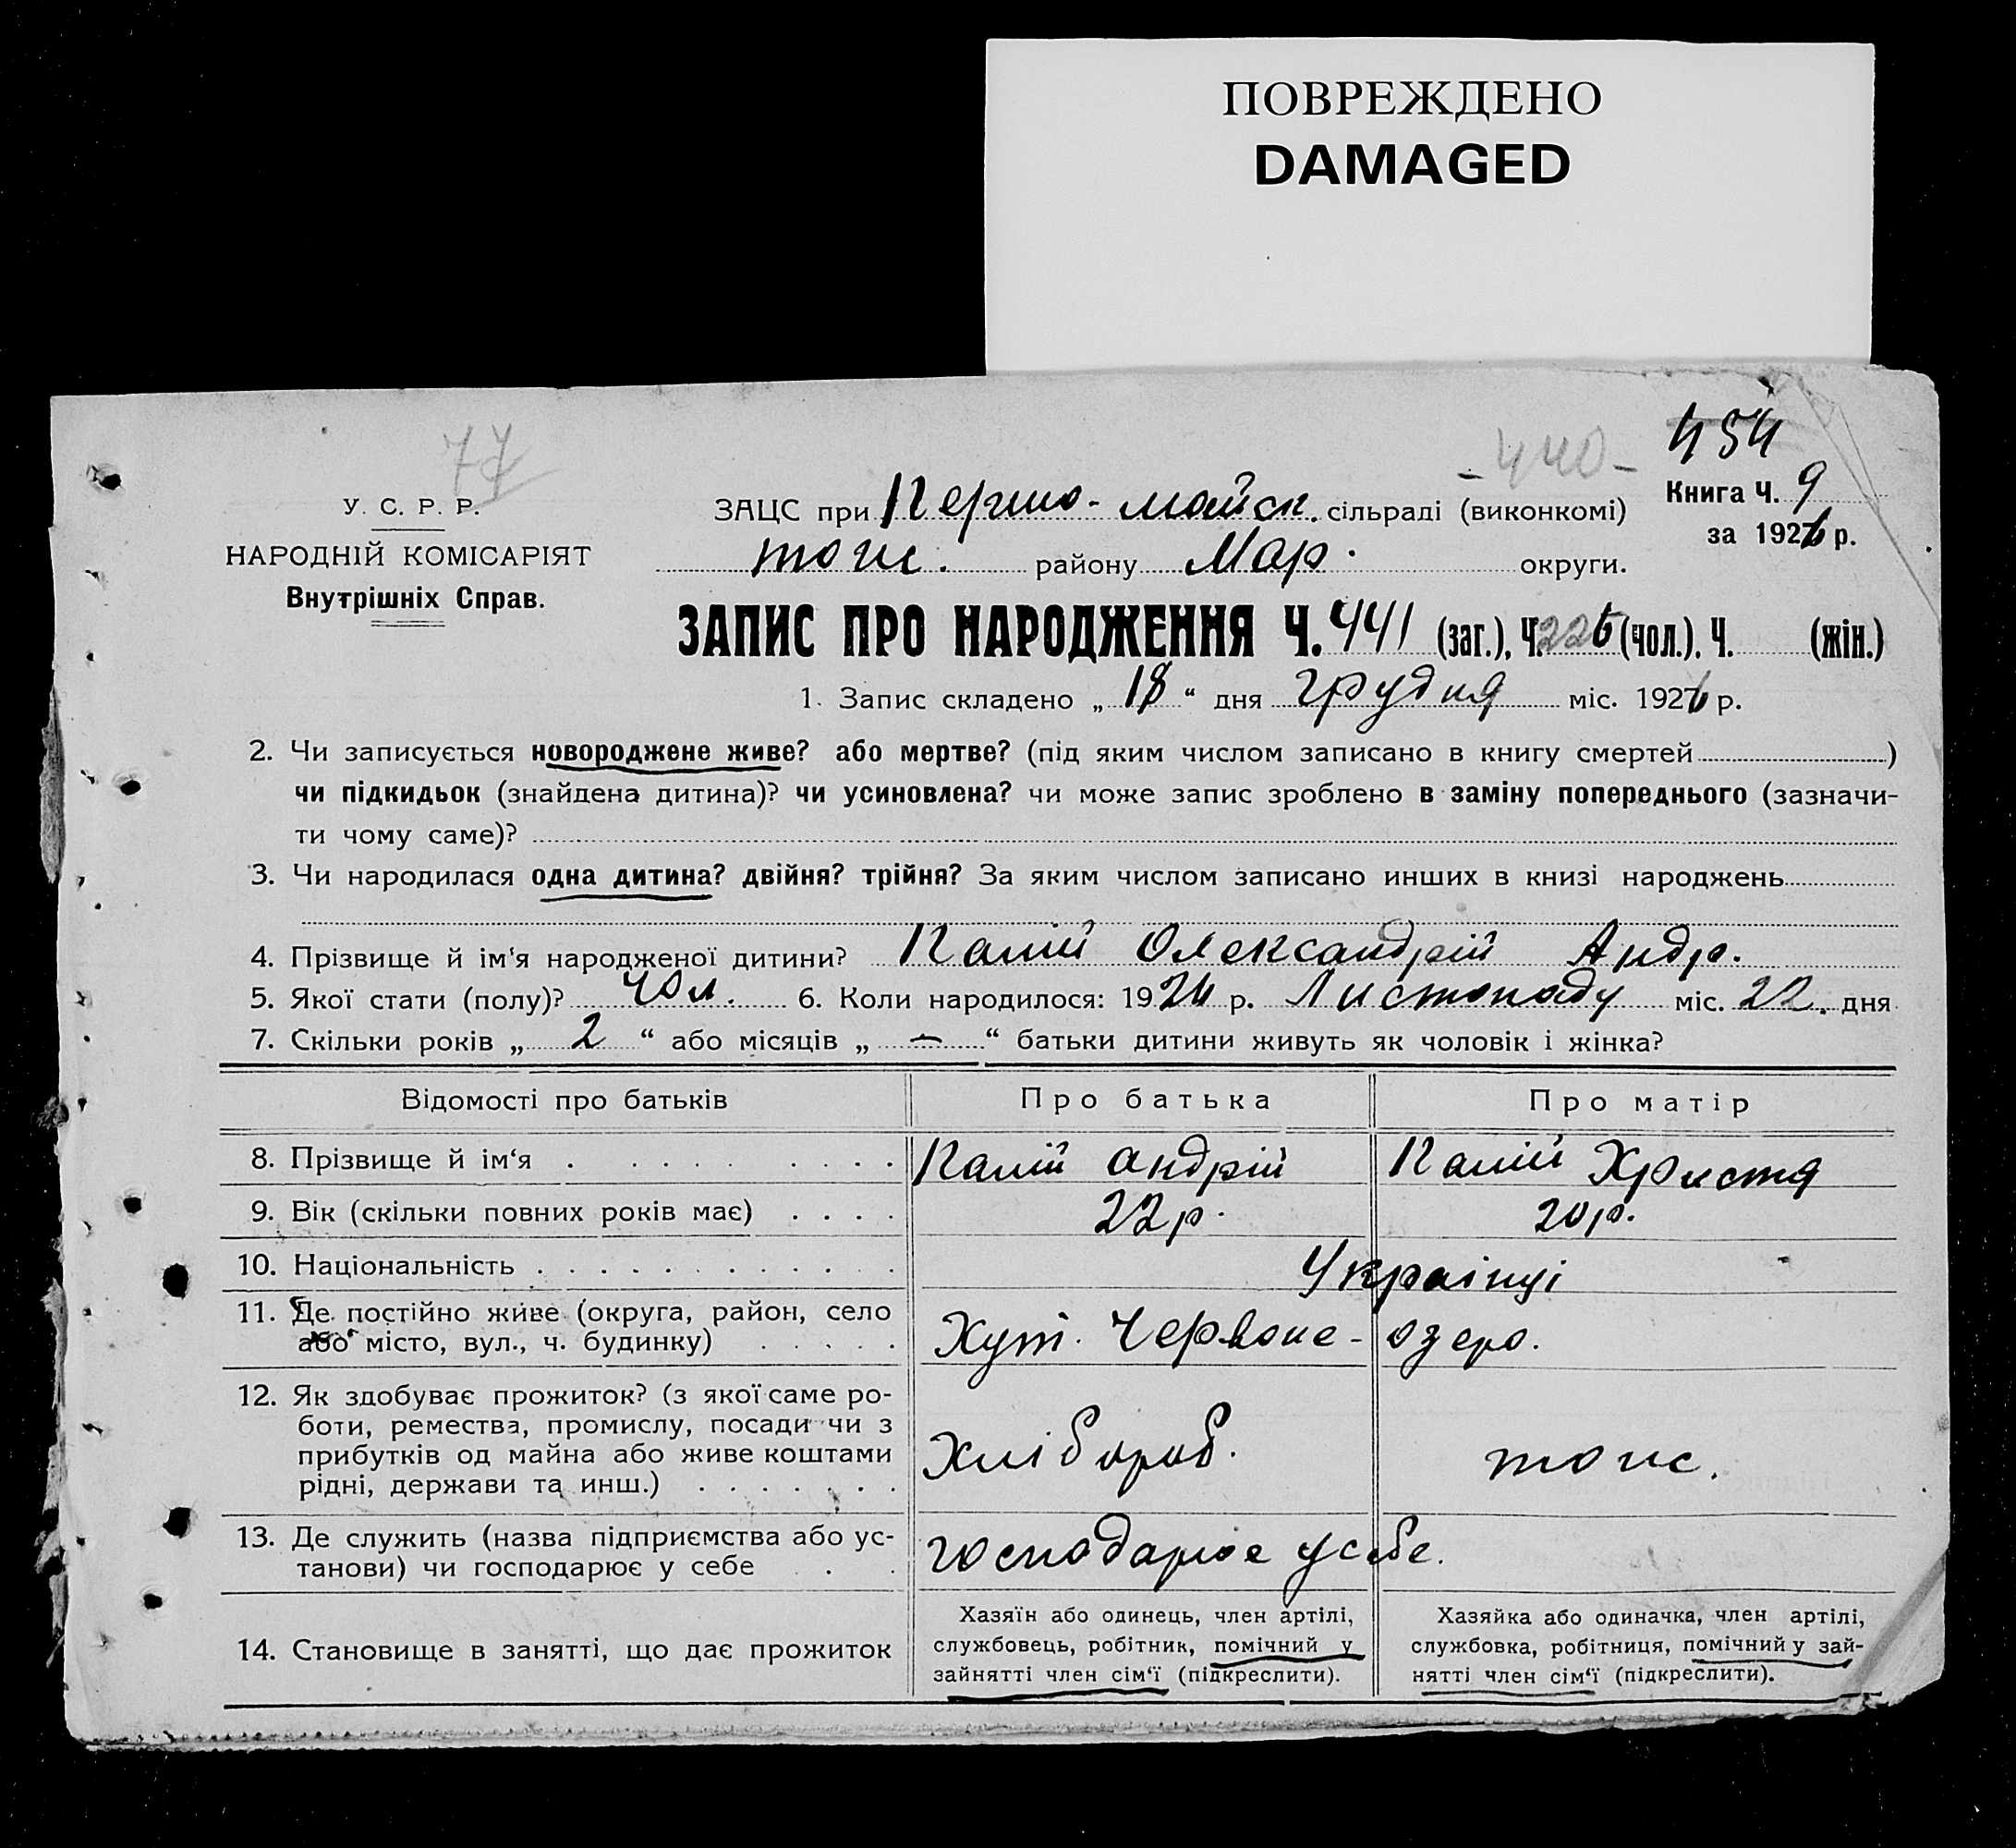 ПОВРЕЖДЕНО
DAMAGED
77
440-
454
У. С. Р. Р.
НАРОДНІЙ КОМІСАРІЯТ
Внутрішніх Справ.
ЗАЦС при Першо-майск. сільраді (виконкомі)
Книга Ч. 9
за 1926 р.
тоже. району Мар. округи.
ЗАПИС ПРО НАРОДЖЕННЯ Ч. 441 (заг.), Ч. 226 (чол.), Ч. (жін.)
1. Запис складено „ 18 “ дня грудня міс. 1926 р.
2. Чи записується новороджене живе? або мертве? (під яким числом записано в книгу смертей )
чи підкидьок (знайдена дитина)? чи усиновлена? чи може запис зроблено в заміну попереднього (зазначи-
ти чому саме)?
3. Чи народилася одна дитина? двійня? трійня? За яким числом записано инших в книзі народжень
4. Прізвище й ім‘я народженої дитини? Палій Олександрій Андр.
5. Якої стати (полу)? чол. 6. Коли народилося: 1926 р. Листопаду міс. 22. дня
7. Скільки років „ 2 “ або місяців „ — “ батьки дитини живуть як чоловік і жінка?
Відомості про батьків Про батька Про матір
8. Прізвище й ім‘я Палій Андрій Палій Христя
9. Вік (скільки повних років має) 22 р. 20 р.
10. Національність Українці
11. Де постійно живе (округа, район, село
або місто, вул., ч. будинку) Хут. Червоне-озеро.
12. Як здобуває прожиток? (з якої саме ро-
боти, ремества, промислу, посади чи з
прибутків од майна або живе коштами
рідні, держави та инш.) Хлібороб.
13. Де служить (назва підприємства або ус-
танови) чи господарює у себе господарює у себе.
14. Становище в занятті, що дає прожиток
Хазяїн або одинець, член артілі,
службовець, робітник, помічний у
зайнятті член сім‘ї (підкреслити).
Хазяйка або одиначка, член артілі,
службовка, робітниця, помічний у зай-
нятті член сім‘ї (підкреслити).